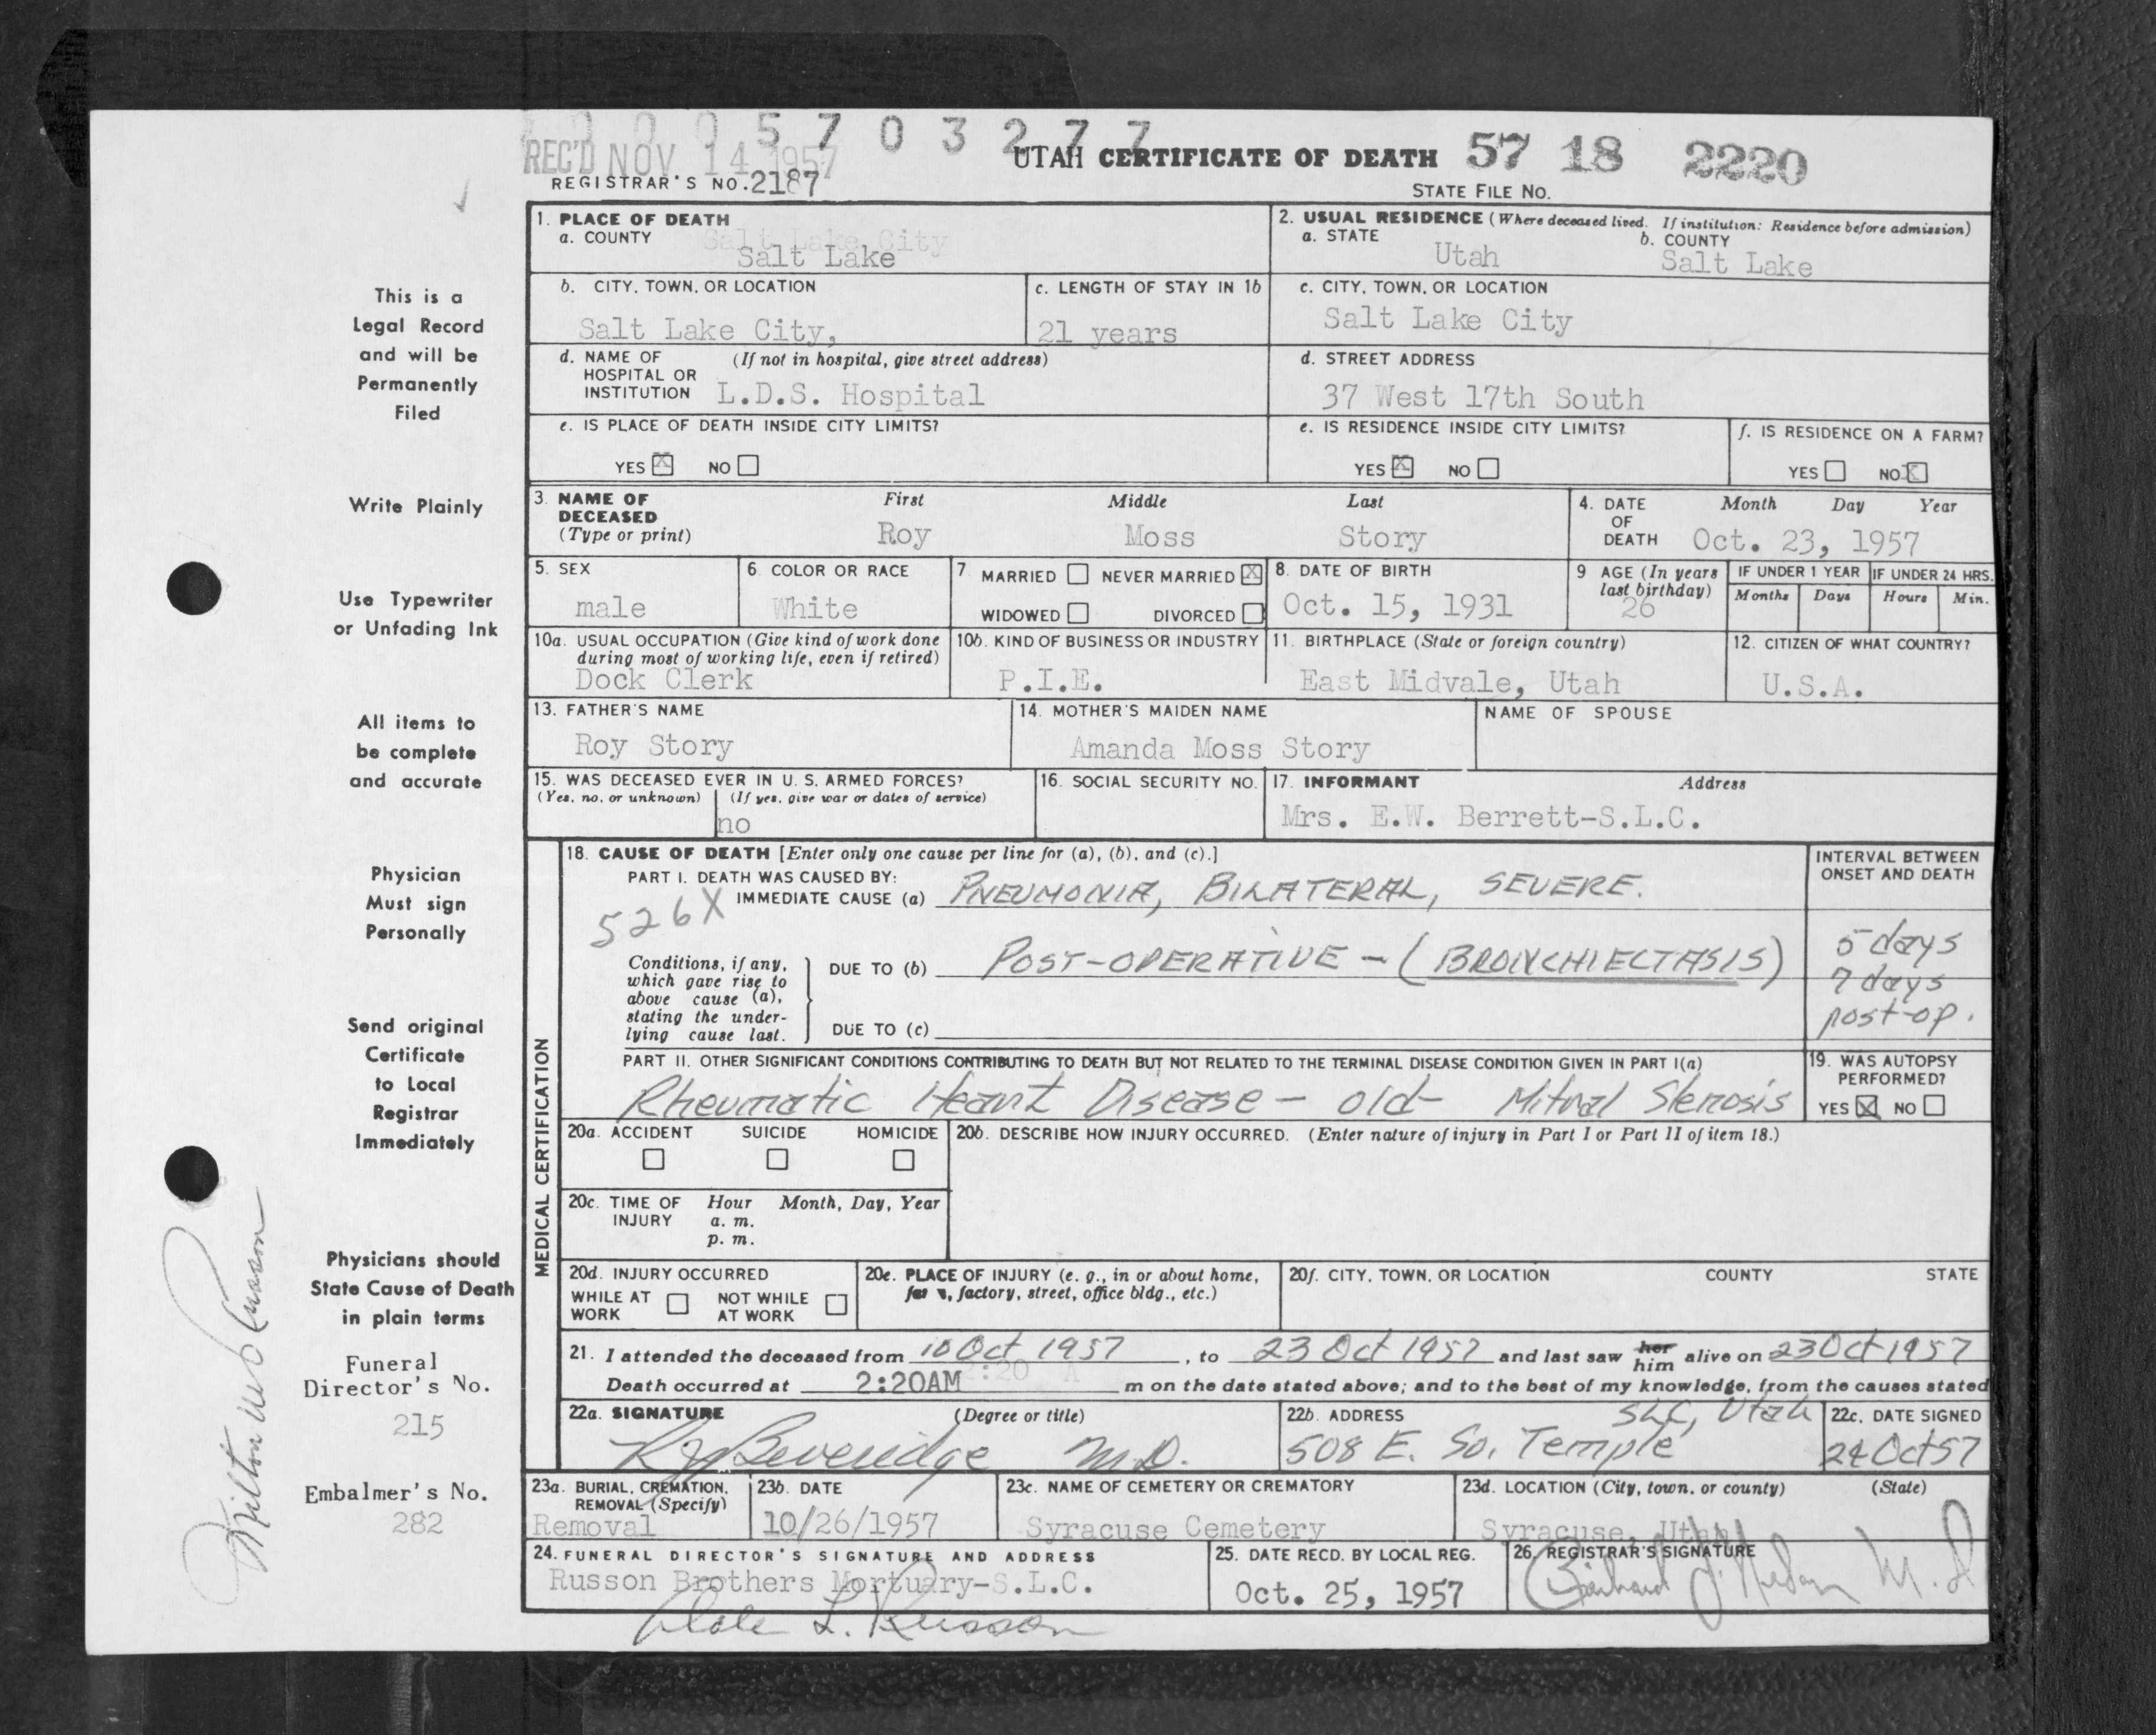 0 0 0 5 7 0 3 2 7 7
REC'D NOV 14 1957
UTAH CERTIFICATE OF DEATH 57 18 2220
REGISTRAR'S NO. 2187
STATE FILE NO.
This is a
Legal Record
and will be
Permanently
Filed
Write Plainly
Use Typewriter
or Unfading Ink
All items to
be complete
and accurate
Physician
Must sign
Personally
Send original
Certificate
to Local
Registrar
Immediately
Physicians should
State Cause of Death
in plain terms
Funeral
Director's No.
215
Embalmer's No.
282
Milton W Russon
1. PLACE OF DEATH
a. COUNTY
Salt Lake City
Salt Lake
2. USUAL RESIDENCE (Where deceased lived. If institution: Residence before admission)
a. STATE
Utah
b. COUNTY
Salt Lake
b. CITY, TOWN, OR LOCATION
Salt Lake City,
c. LENGTH OF STAY IN 1b
21 years
c. CITY, TOWN, OR LOCATION
Salt Lake City
d. NAME OF (If not in hospital, give street address)
HOSPITAL OR
INSTITUTION L.D.S. Hospital
d. STREET ADDRESS
37 West 17th South
e. IS PLACE OF DEATH INSIDE CITY LIMITS?
YES X NO
e. IS RESIDENCE INSIDE CITY LIMITS?
YES X NO
f. IS RESIDENCE ON A FARM?
YES NO X
3. NAME OF First Middle Last
DECEASED
(Type or print) Roy Moss Story
4. DATE Month Day Year
OF
DEATH Oct. 23, 1957
5. SEX
male
6. COLOR OR RACE
White
7 MARRIED NEVER MARRIED X
WIDOWED DIVORCED
8. DATE OF BIRTH
Oct. 15, 1931
9 AGE (In years
last birthday)
26
IF UNDER 1 YEAR IF UNDER 24 HRS.
Months Days Hours Min.
10a. USUAL OCCUPATION (Give kind of work done
during most of working life, even if retired)
Dock Clerk
10b. KIND OF BUSINESS OR INDUSTRY
P.I.E.
11. BIRTHPLACE (State or foreign country)
East Midvale, Utah
12. CITIZEN OF WHAT COUNTRY?
U.S.A.
13. FATHER'S NAME
Roy Story
14. MOTHER'S MAIDEN NAME
Amanda Moss Story
NAME OF SPOUSE
15. WAS DECEASED EVER IN U. S. ARMED FORCES?
(Yes, no, or unknown) (If yes, give war or dates of service)
no
16. SOCIAL SECURITY NO.
17. INFORMANT Address
Mrs. E.W. Berrett-S.L.C.
MEDICAL CERTIFICATION
18. CAUSE OF DEATH [Enter only one cause per line for (a), (b), and (c).]
PART I. DEATH WAS CAUSED BY:
IMMEDIATE CAUSE (a) PNEUMONIA, BILATERAL, SEVERE.
526X
Conditions, if any,
which gave rise to
above cause (a),
stating the under-
lying cause last.
DUE TO (b) POST-OPERATIVE - (BRONCHIECTASIS)
DUE TO (c)
INTERVAL BETWEEN
ONSET AND DEATH
5 days
7 days
post-op.
PART II. OTHER SIGNIFICANT CONDITIONS CONTRIBUTING TO DEATH BUT NOT RELATED TO THE TERMINAL DISEASE CONDITION GIVEN IN PART I(a)
Rheumatic Heart Disease - old - Mitral Stenosis
19. WAS AUTOPSY
PERFORMED?
YES X NO
20a. ACCIDENT SUICIDE HOMICIDE
20b. DESCRIBE HOW INJURY OCCURRED. (Enter nature of injury in Part I or Part II of item 18.)
20c. TIME OF Hour Month, Day, Year
INJURY a. m.
p. m.
20d. INJURY OCCURRED
WHILE AT NOT WHILE
WORK AT WORK
20e. PLACE OF INJURY (e. g., in or about home,
farm, factory, street, office bldg., etc.)
20f. CITY, TOWN, OR LOCATION COUNTY STATE
21. I attended the deceased from 10 Oct 1957, to 23 Oct 1957 and last saw her him alive on 23 Oct 1957
Death occurred at 2:20AM 2:20 A m on the date stated above; and to the best of my knowledge, from the causes stated
22a. SIGNATURE (Degree or title)
Beveridge M.D.
22b. ADDRESS SLC, Utah
508 E. So. Temple
22c. DATE SIGNED
24 Oct 57
23a. BURIAL, CREMATION,
REMOVAL (Specify)
Removal
23b. DATE
10/26/1957
23c. NAME OF CEMETERY OR CREMATORY
Syracuse Cemetery
23d. LOCATION (City, town, or county) (State)
Syracuse, Utah
24. FUNERAL DIRECTOR'S SIGNATURE AND ADDRESS
Russon Brothers Mortuary-S.L.C.
Dale L. Russon
25. DATE RECD. BY LOCAL REG.
Oct. 25, 1957
26. REGISTRAR'S SIGNATURE
M.D